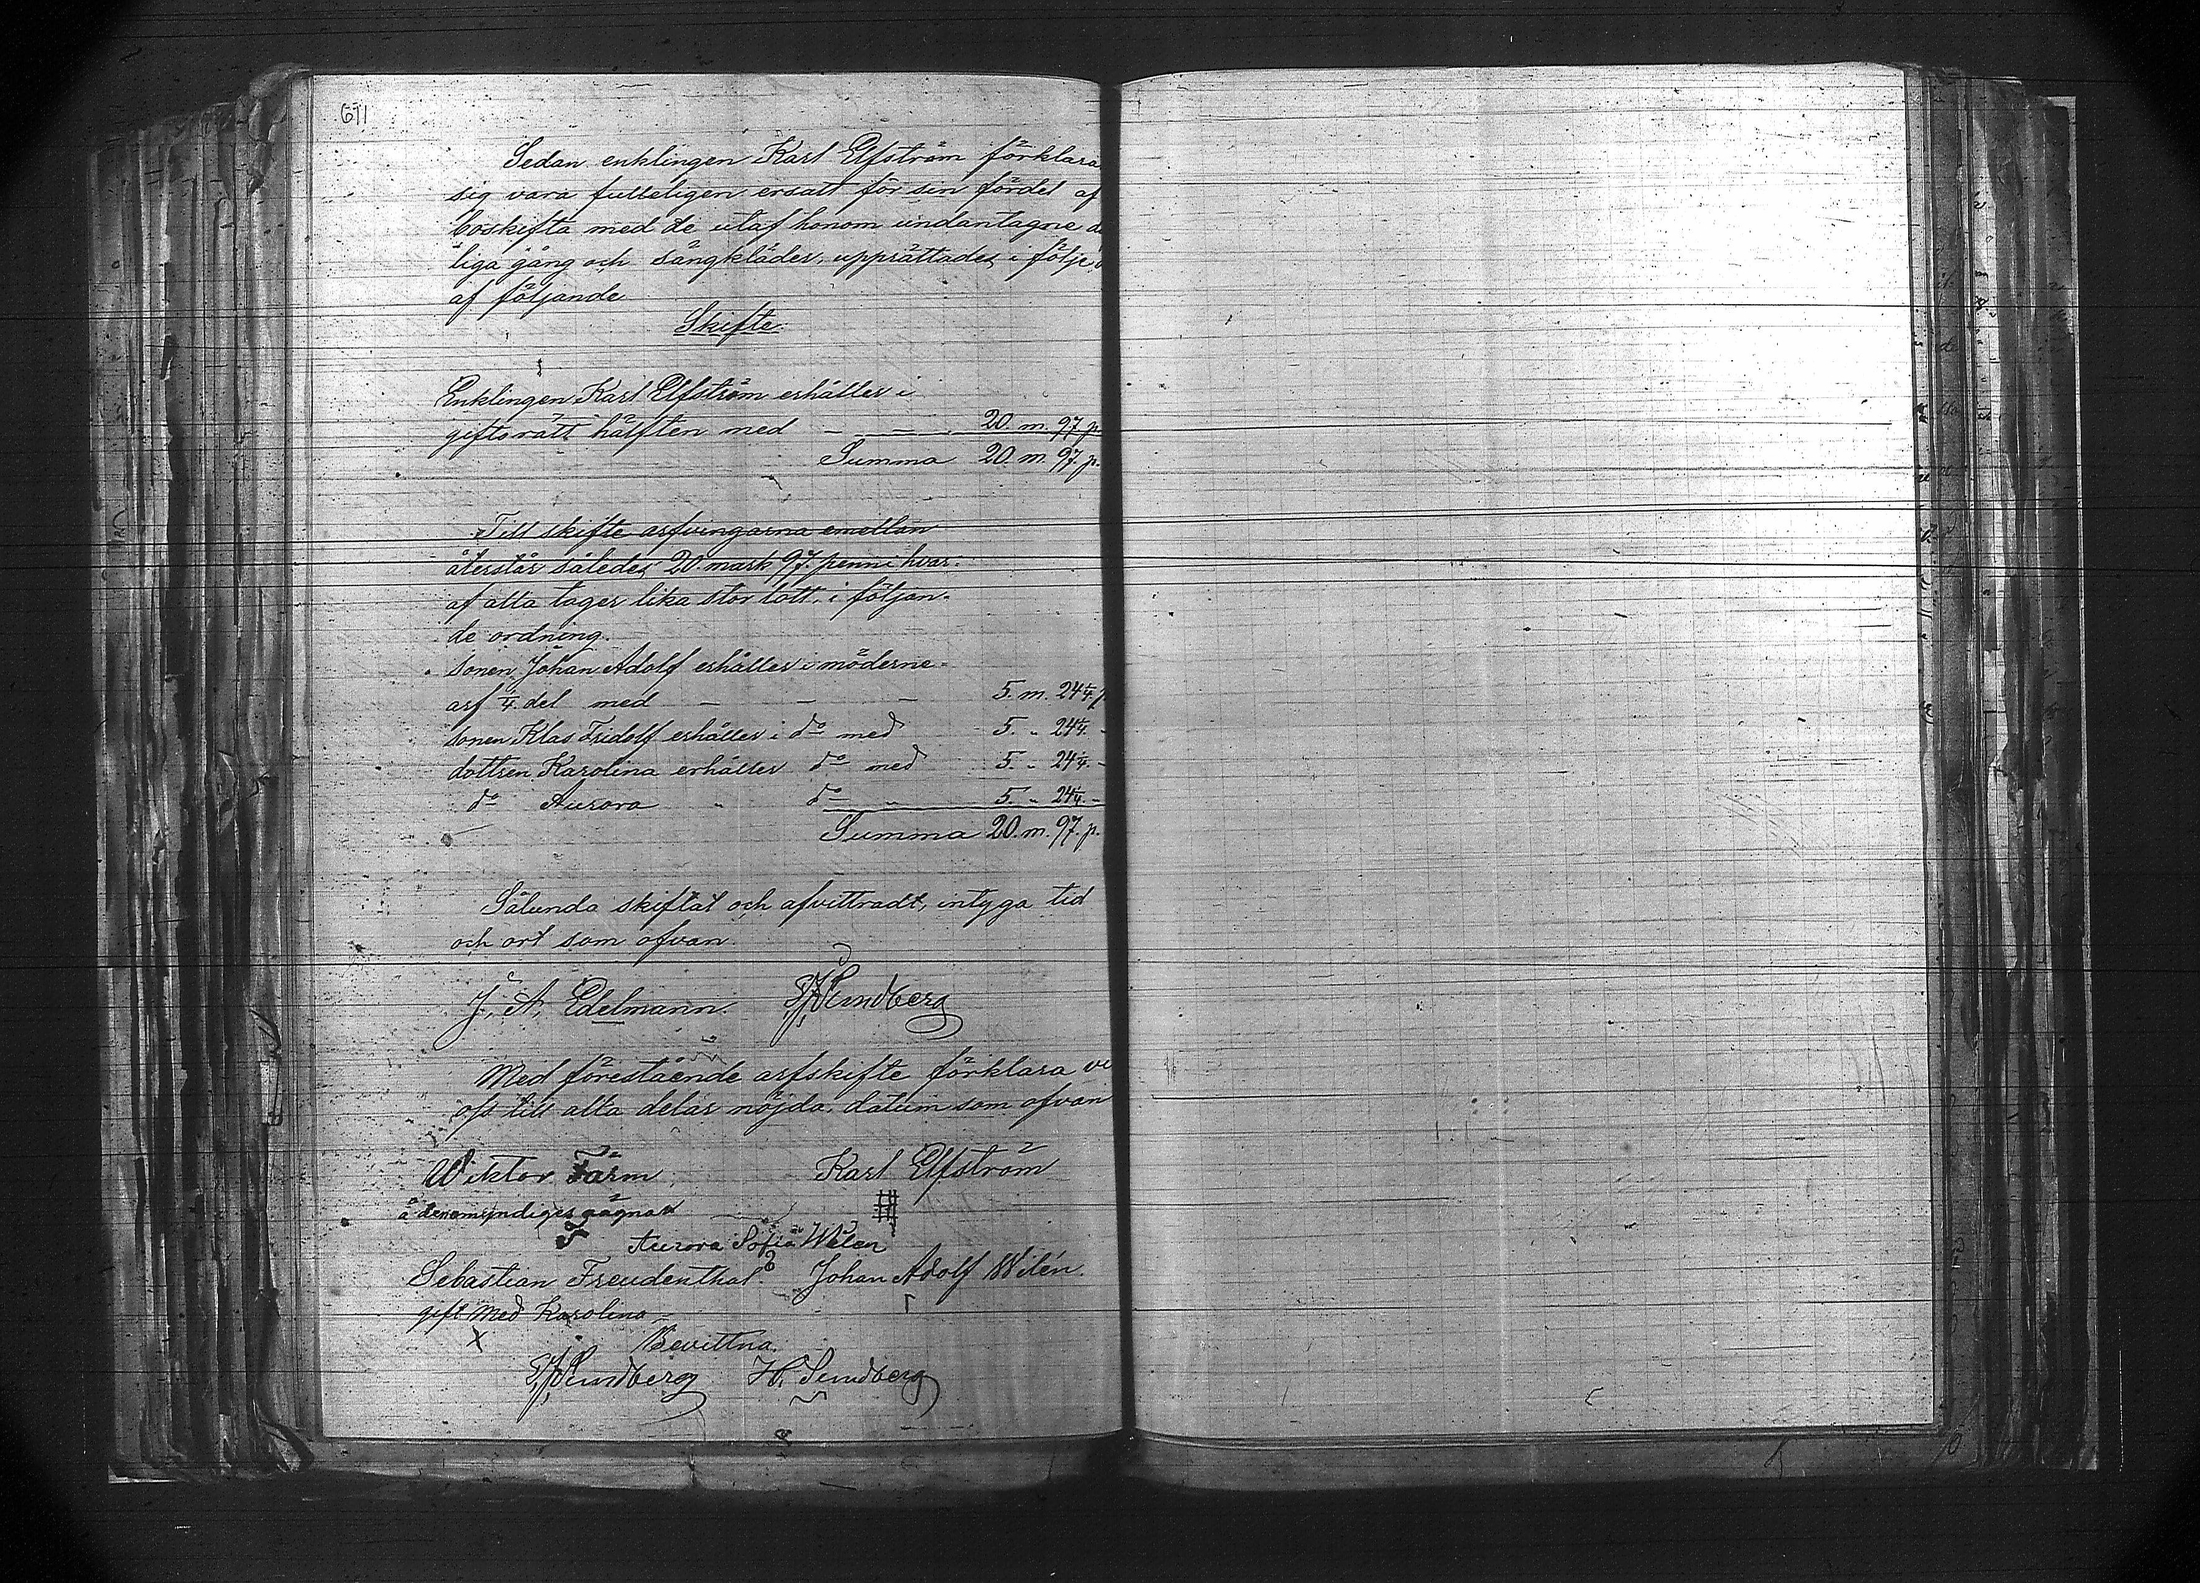 611
Sedan enklingen Karl Elfström förklara
sig vara fulleligen ersatt för sin fördel af
boskifta med de utaf honom undantagne da
liga gång och sängkläder, upprättades i följe
af följande
Skifte:
Enklingen Karl Elfström erhåller i
giftorätt hälften med - - - 20. m. 97. p.
Summa 20. m. 97. p.
Till skifte arfvingarna emellan
återstår således 20 mark 97. penni hvar-
af alla tager lika stor lott, i följan-
de ordning.
sonen Johan Adolf erhåller i möderne-
arf 1/4 del med - - - 5. m. 24 1/4. p
sonen Klas Fridolf erhåller i do med 5. " 24 1/4. -
dottren Karolina erhåller do med 5. " 24 1/4. -
do Aurora " do " 5. " 24 1/4 -
Summa 20. m. 97. p.
Sålunda skiftat och afvittradt, intyga tid
och ort som ofvan.
J. A. Edelmann. Sundberg
Med förestående arfskifte förklara vi
oss till alla delar nöjda, datum som ofvan
Wiktor Färm Karl Elfström
å den omyndiges vägnar
Aurora Sofia Wilen
Sebastian Freudenthal. Johan Adolf Wilén.
gift Med Karolina
X
Bevittna.
Sundberg H. Sundberg